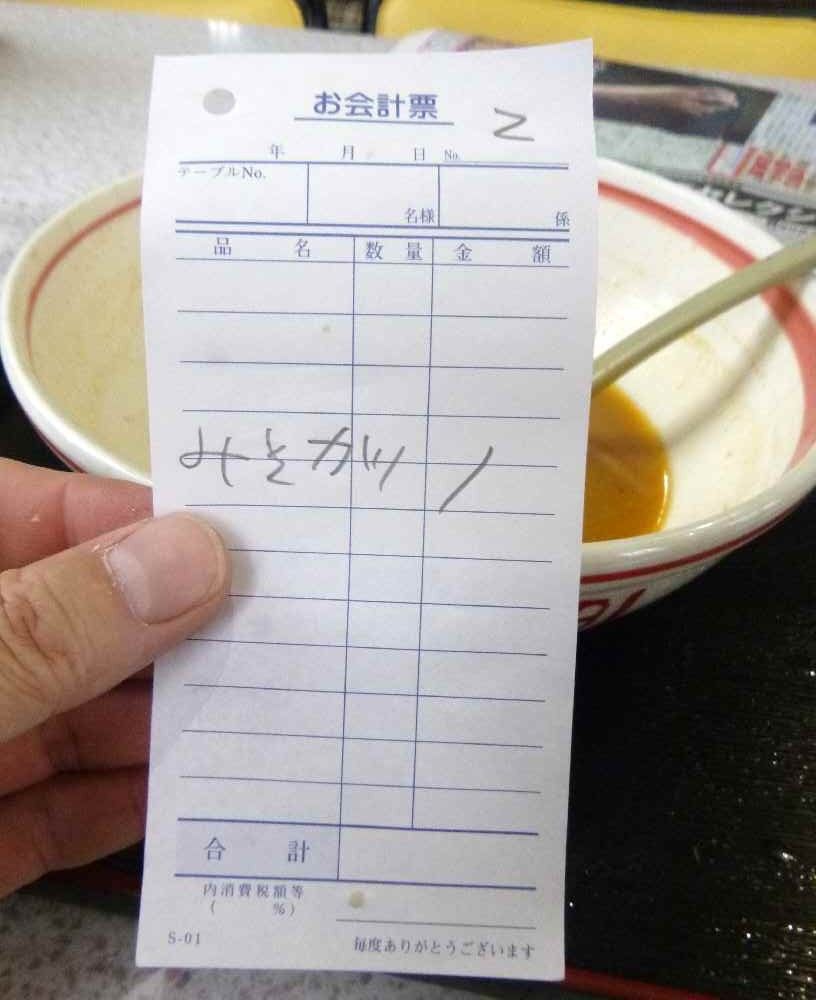 お会計票 2
年 月 日 No.
テーブルNo. 名様 係
品名 数量 金額
みそカツ 1
合計
内消費税額等
( %)
S-01 毎度ありがとうございます
セレクシ